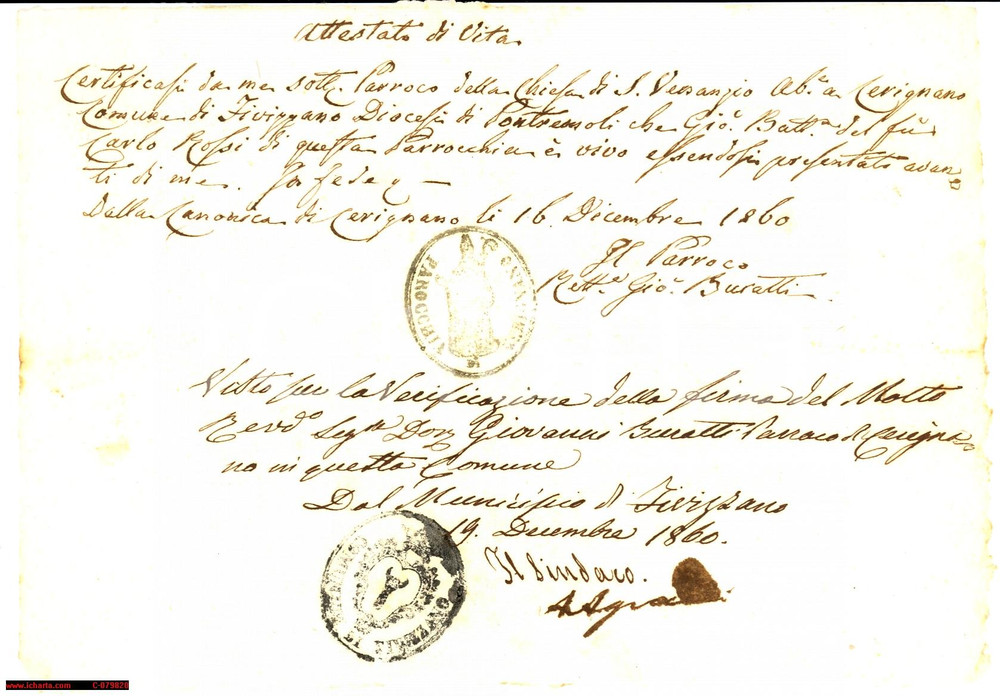 Attestato di Vita
Certificasi da me sott.º Parroco della Chiesa di S. Venanzio Ab.e a Cerignano
Comune di Fivizzano Diocesi di Pontremoli che Gio. Batt.a del fu
Carlo Rossi di questa Parrocchia è vivo essendosi presentato avan=
ti di me. In fede
Dalla Canonica di Cerignano li 16. Dicembre 1860
Il Parroco
Rett.e Gio. Buratti
Visto per la Verificazione della firma del Molto
Revd.o Sig.r Don Giovanni Buratti Parroco di Cerigna=
no in questa Comune
Dal Municipio di Fivizzano
19. Decembre 1860.
Il Sindaco.
www.icharta.com C-079820